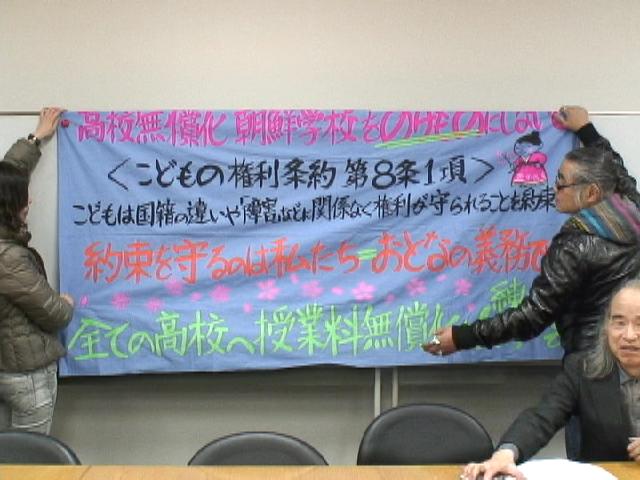 高校無償化 朝鮮学校をのけものにしない
<こどもの権利条約 第8条1項>
こどもは国籍の違いや「障害」などに関係なく権利が守られることを約束
約束を守るのは私たち=おとなの義務で
全ての高校へ授業料無償化